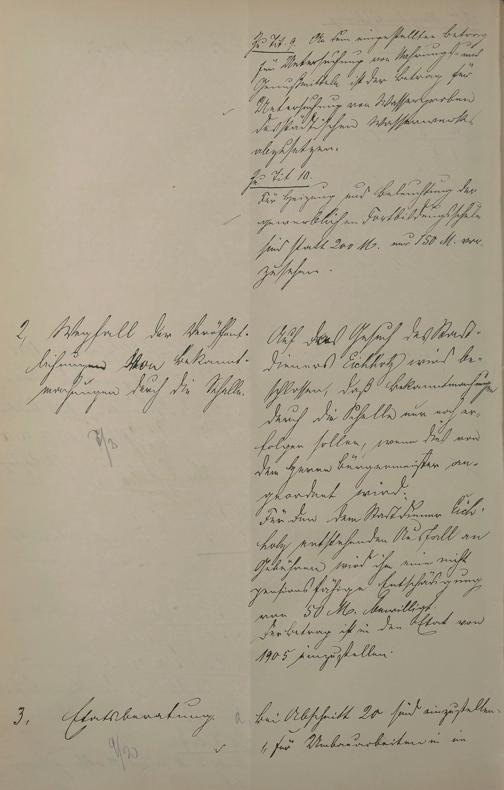 Zu Tit. 9. An dem eingestellten Betrag
für Untersuchung von Nahrungs- und
Genußmitteln ist der Betrag für
Untersuchung von Wasserproben
des städtischen Wasserwerks
abzusetzen.
Zu Tit 10.
Für Heizung und Beleuchtung der
gewerblichen Fortbildungsschule
sind statt 200 M. nur 150 M. vor-
zusehen.
2, Wegfall der Veröffent-
lichungen von Bekannt-
machungen durch die Schelle.
Auf das Gesuch des Stadt-
dieners Eichholz wird be-
schlossen, daß Bekanntmachungen
durch die Schelle nur noch er-
folgen sollen, wenn dies von
dem Herrn Bürgermeister an-
geordnet wird.
Für den dem Stadtdiener Eich-
holz entstehenden Ausfall an
Gebühren wird ihm eine nicht
pensionsfähige Entschädigung
von 50 M. bewilligt.
Der Betrag ist in den Etat von
1905 einzustellen.
3, Etatsberatung.
a, bei Abschnitt 20 sind einzustellen:
für Umbauarbeiten in im